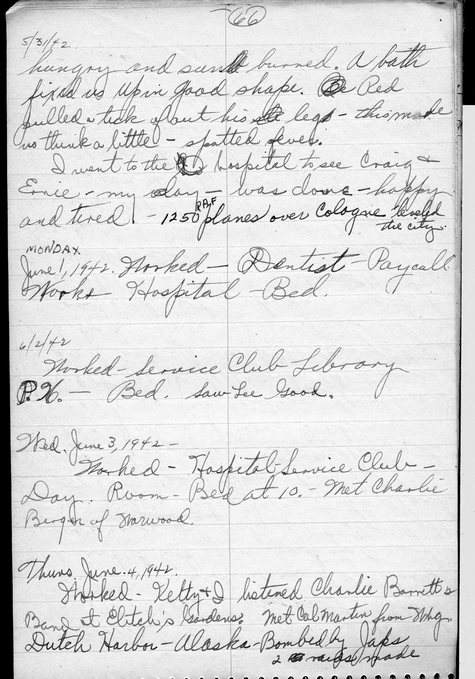 66
5/31/42
hungry and sun burned. A bath
fixed us up in good shape. Red
pulled a tick out his leg - this made
us think a little - spotted fever.
I went to the Hospital to see Craig &
Ernie - my day - was done - happy
and tired. - 1250 RAF planes over Cologne leveled
the city.
MONDAY
June 1, 1942. Worked - Dentist - Paycall
Works Hospital - Bed.
6/2/42
Worked - Service Club Library
P.X. - Bed. Saw Lee Good.
Wed. June 3, 1942 -
Worked - Hospital - Service Club -
Day. Room - Bed at 10. - Met Charlie
Berger of Norwood.
Thurs June. 4, 1942.
Worked - Ketty & I listened Charlie Barnett's
Band at Elitch's Gardens. Met Cal Martin from
Dutch Harbor - Alaska - Bombed by Japs
2 raids made